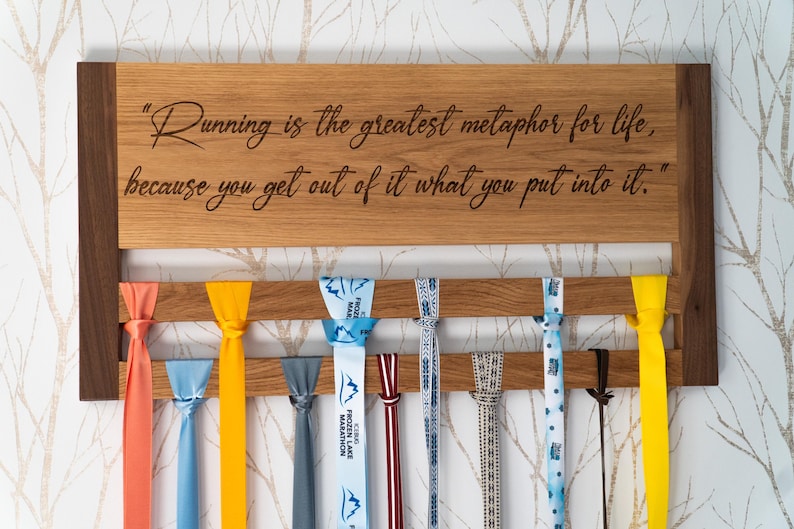 "Running is the greatest metaphor for life,
because you get out of it what you put into it."
FROZEN
ICEBUG
FROZEN LAKE
MARATHON